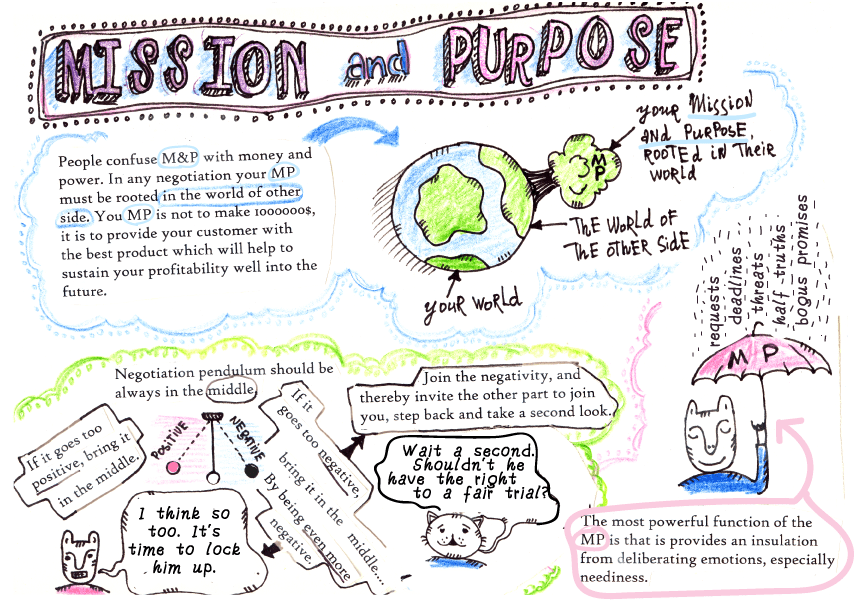 MISSION and PURPOSE
People confuse M&P with money and
power. In any negotiation your MP
must be rooted in the world of other
side. You MP is not to make 1000000$,
it is to provide your customer with
the best product which will help to
sustain your profitability well into the
future.
MP
your Mission
AND PURPOSE,
ROOTED IN THEIR
WORLD
THE WORLD OF
THE OTHER SIDE
YOUR WORLD
requests
deadlines
threats
half-truths
bogus promises
MP
Negotiation pendulum should be
always in the middle.
If it goes too
positive, bring it
in the middle.
POSITIVE
NEGATIVE
If it
goes too negative,
bring it in the middle....
By being even more
negative.
Join the negativity, and
thereby invite the other part to join
you, step back and take a second look.
Wait a second.
Shouldn't he
have the right
to a fair trial?
I think so
too. It's
time to lock
him up.
The most powerful function of the
MP is that is provides an insulation
from deliberating emotions, especially
neediness.